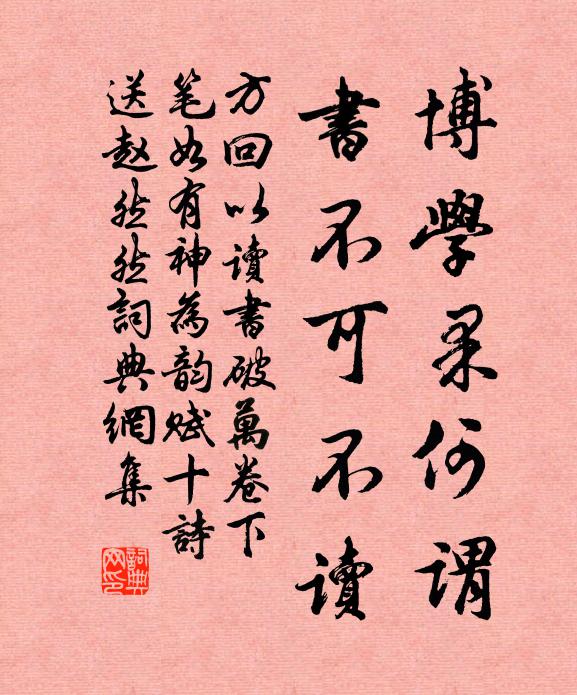 博學果何謂
書不可不讀
方回以讀書破萬卷下
笔如有神為韵赋十詩
送赵然然詞典網集
詞典网印